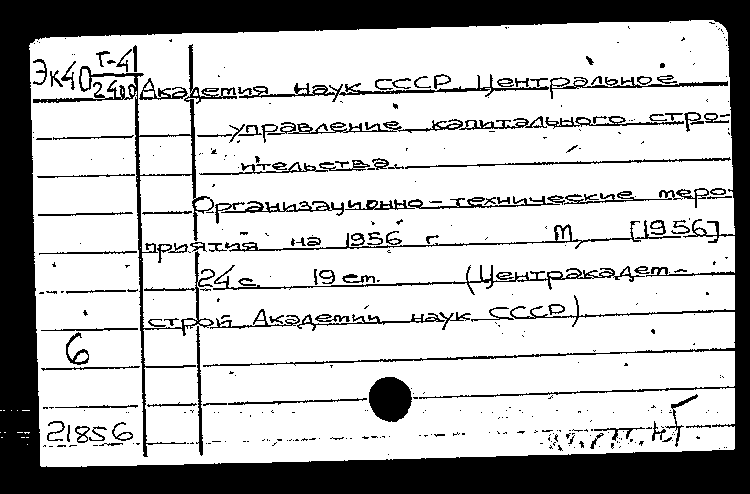 Эк40 Г-4
2400
Академия наук СССР. Центральное
управление капитального стро-
ительства.
Организационно-технические меро-
приятия на 1956 г. М, [1956]
24 с. 19 cm. (Центракадем-
строй Академии наук СССР)
6
21856